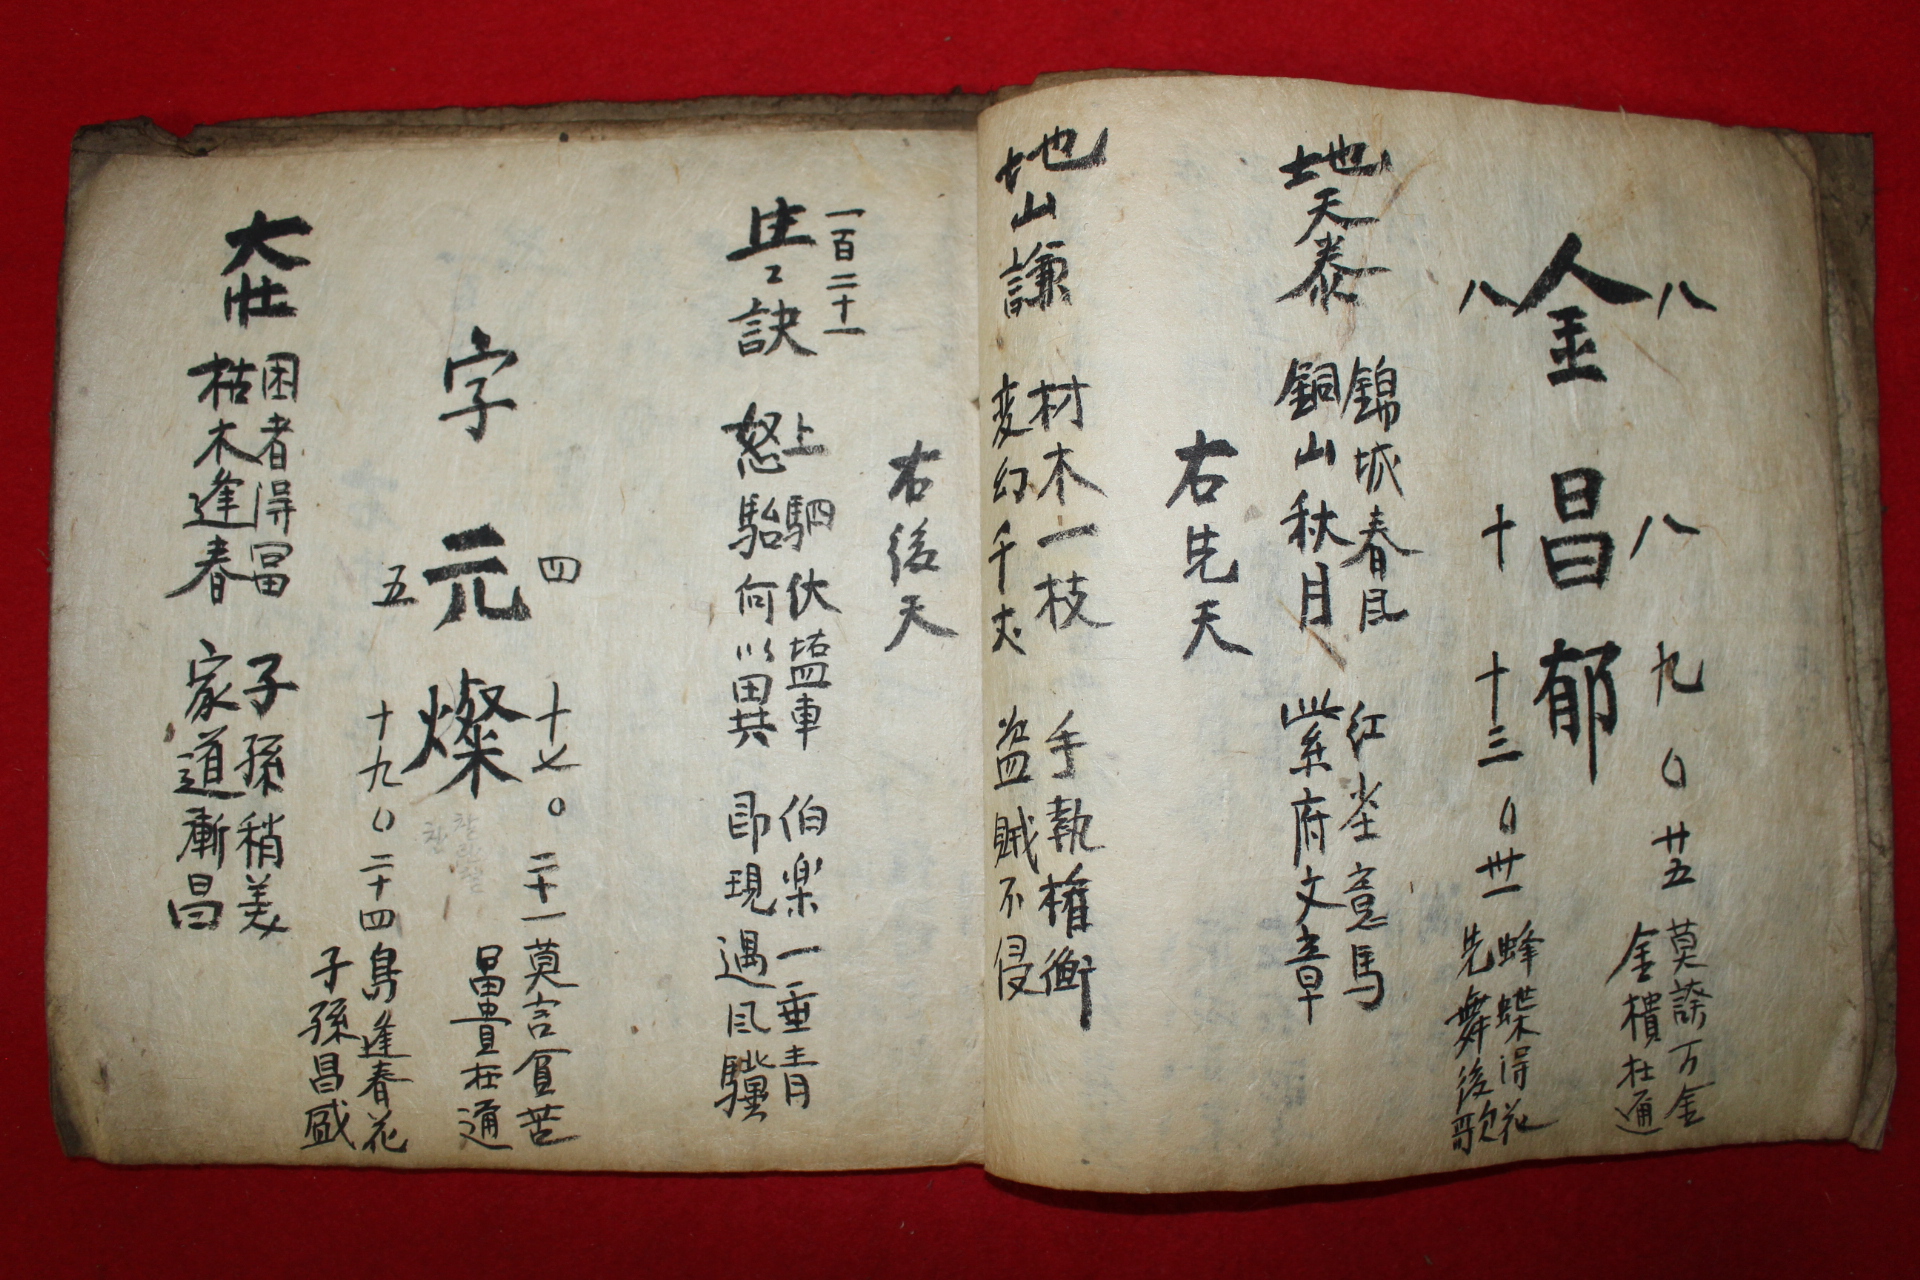 八
金
八
八
昌
十
九〇廿五
郁
十三〇卅一
莫誇万金
金櫃杜通
蜂蝶得花
先舞後歌
地天泰
錦城春風
銅山秋月
紅塵意馬
紫府文章
右先天
地山謙
材木一枝
変幻千丈
手執權衡
盜賊不侵
右後天
一百二十一
訣
上駟伏塩車
怒駘何以異
伯楽一垂青
即現遇風驥
字
四
元
五
十七〇二十一
燦
十九〇二十四
莫言貧苦
昌貴在通
鳥逢春花
子孫昌盛
大壯
困者得冨
枯木逢春
子孫稍美
家道漸昌